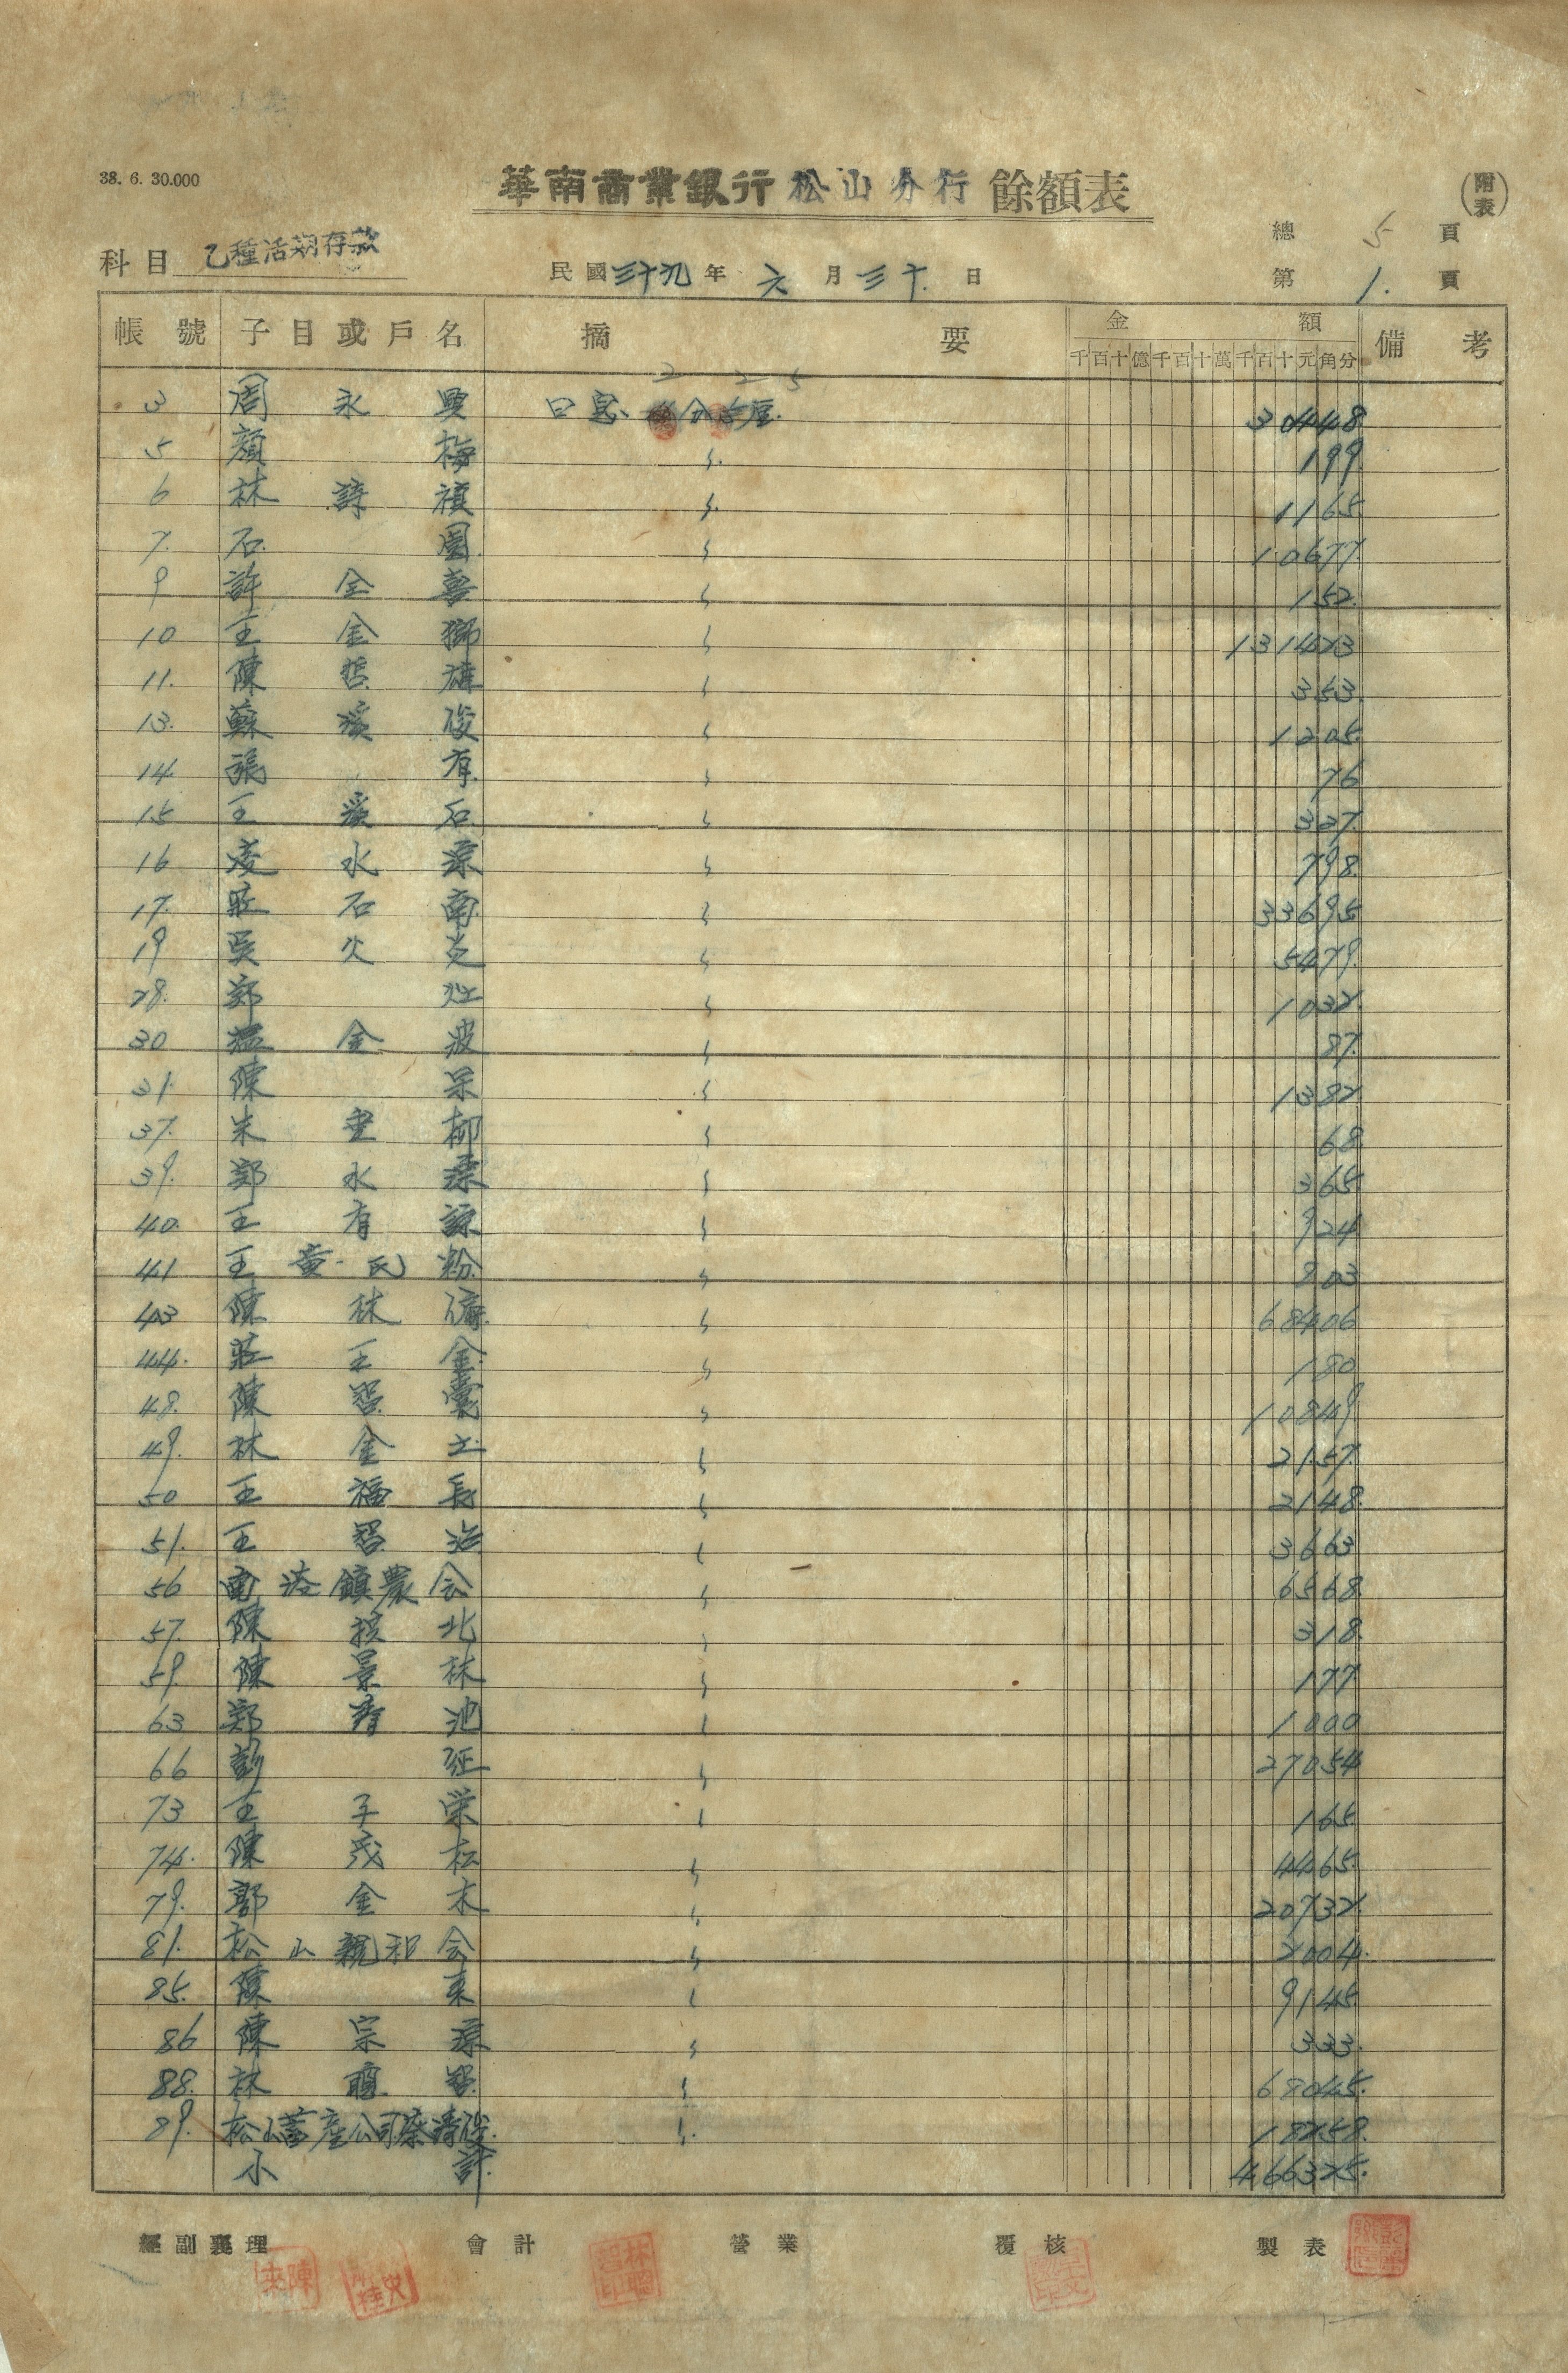 38. 6. 30.000
華南商業銀行松山分行 餘額表
(附表)
總 5 頁
科目 乙種活期存款
民國三十九年 六 月三十 日
第 1. 頁
帳號 子目或戶名 摘要 金額 備考
千百十億千百十萬千百十元角分
2 2 5
3 周永興 口息 30448
5 顏 梅 〃 199
6 林詩禎 〃 1165
7. 石 園 〃 10677
9 許金喜 〃 152
10 王金獅 〃 131423
11. 陳哲雄 〃 353
13. 蘇溪俊 〃 1205
14 張 有 〃 76
15 王溪石 〃 327
16 凌水源 〃 798
17. 莊石南 〃 33695
19 吳火炎 〃 5479
28. 鄭 〃 1032
30 溫金波 〃 87
31. 陳 呆 〃 1382
37. 朱 柳 〃 68
39. 鄭水源 〃 365
40. 王有諒 〃 924
41 王黃氏粉 〃 803
43 陳林 〃 68406
44. 莊王金 〃 180
48. 陳 〃 10849
49. 林金土 〃 2157
50 王福長 〃 2148
51. 王 治 〃 3663
56 南港鎮農会 〃 6568
57. 陳 北 〃 318
59. 陳景林 〃 177
63 鄭春池 〃 1000
66 彭 征 〃 27054
73 王子榮 〃 165
74. 陳茂松 〃 4465
79. 郭金木 〃 20732
81. 松山親和会 〃 2004
85. 陳 来 〃 9145
86 陳宗源 〃 333
88. 林 〃 68045
89. 松山畜產公司蔡清俊 〃 18258
小計 466325
經副襄理 會計 營業 覆核 製表